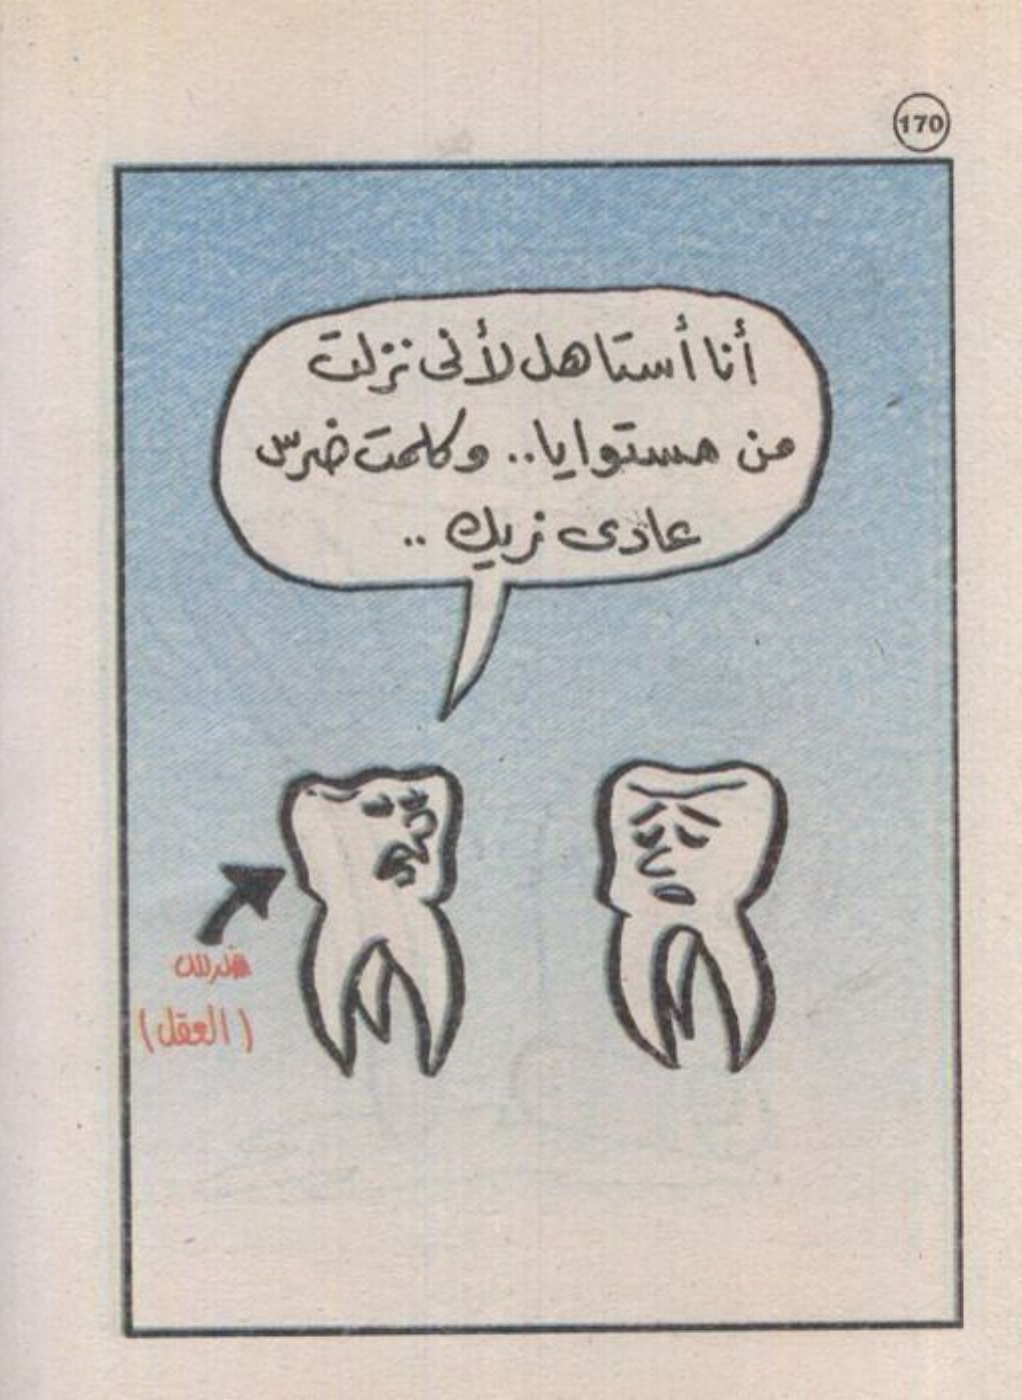 170
أنا أستاهل لأنى نزلت
من مستوايا.. وكلمت ضرس
عادى زيك ..
ضرس
(العقل)